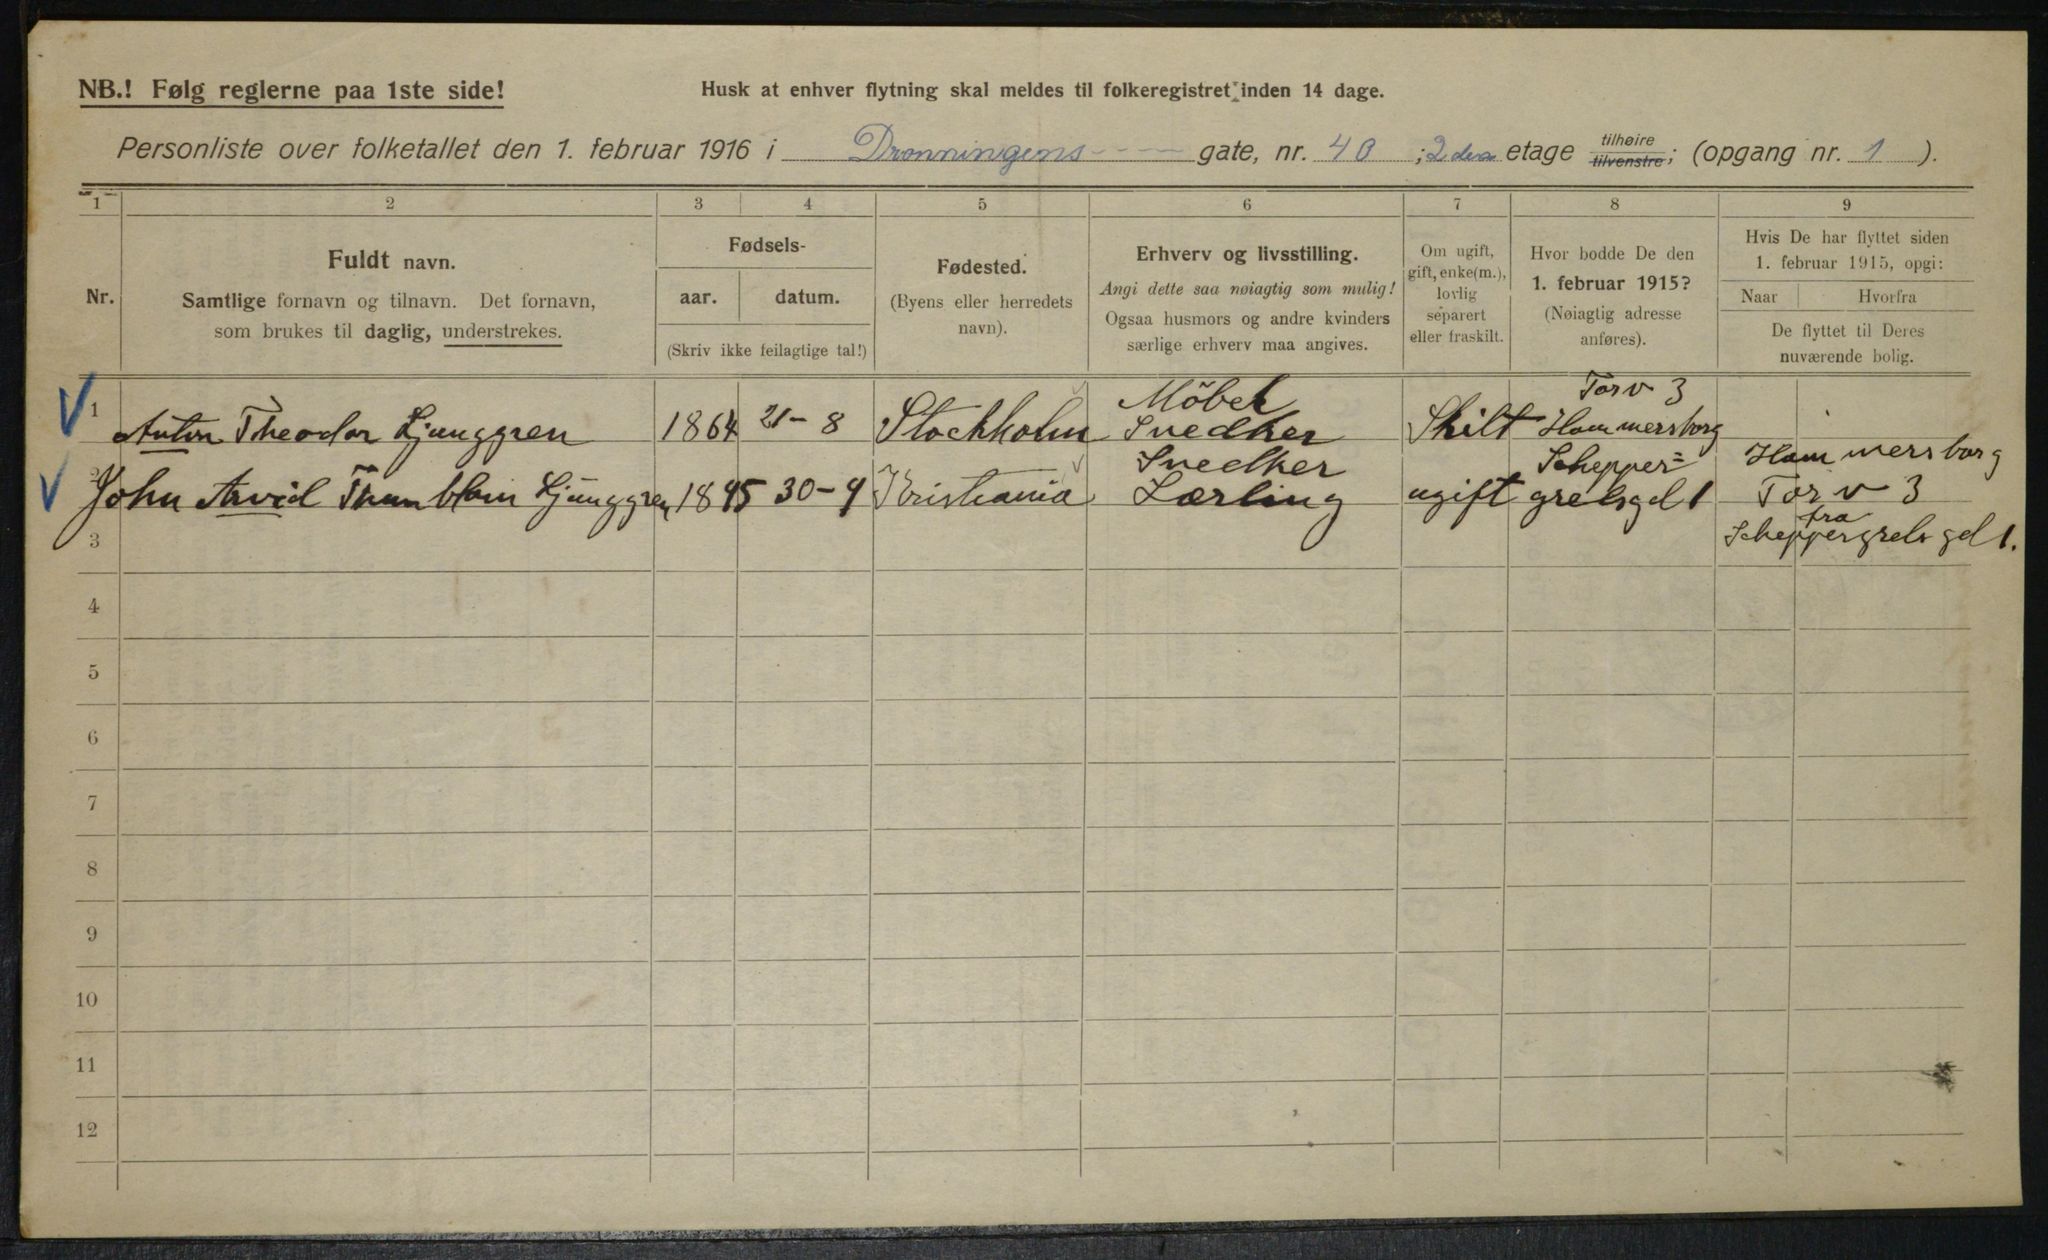 NB.! Følg reglerne paa 1ste side!
Husk at enhver flytning skal meldes til folkeregistret inden 14 dage.
Personliste over folketallet den 1. februar 1916 i Dronningens gate, nr. 40 ; 2den etage tilhøire tilvenstre; (opgang nr. 1 ).
1 2 3 4 5 6 7 8 9
Nr.
Fuldt navn.
Samtlige fornavn og tilnavn. Det fornavn,
som brukes til daglig, understrekes.
Fødsels-
aar. datum.
(Skriv ikke feilagtige tal!)
Fødested.
(Byens eller herredets
navn).
Erhverv og livsstilling.
Angi dette saa nøiagtig som mulig!
Ogsaa husmors og andre kvinders
særlige erhverv maa angives.
Om ugift,
gift, enke(m.),
lovlig
separert
eller fraskilt.
Hvor bodde De den
1. februar 1915?
(Nøiagtig adresse
anføres).
Hvis De har flyttet siden
1. februar 1915, opgi:
Naar Hvorfra
De flyttet til Deres
nuværende bolig.
Möbel Torv 3
1 Anton Theodor Ljunggren 1864 21-8 Stockholm Snedker Skilt Hammersborg
Snedker Schepper= Hammersborg
2 John Arvid Ljunggren 1895 30-9 Kristiania Lærling ugift grelsgd 1 Torv 3
fra
3 Scheppergrels gd 1.
4
5
6
7
8
9
10
11
12